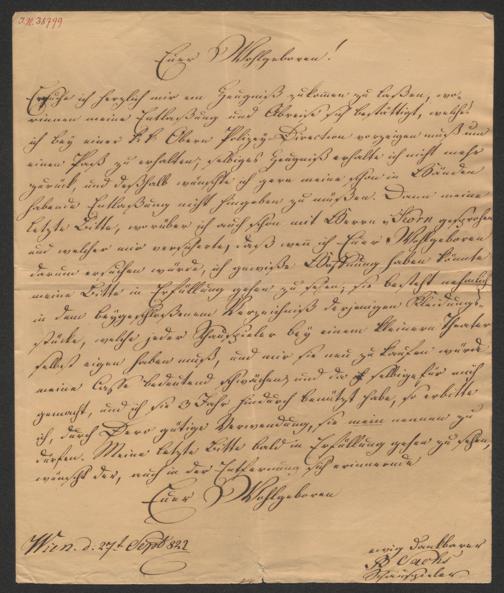 I.N. 38799
Euer Wohlgeboren!
Ersuche ich herzlich mir ein Zeugniß zukomen zu laßen, wo-
rinnen meine Entlaßung und Abreise sich bestättigt, welches
ich bey einer k. k. Obern Polizey Direction vorzeigen muß um
einen Paß zu erhalten; selbiges Zeugniß erhalte ich nicht mehr
zurück, und deßhalb wünschte ich gern meine schon in Händen
habende Entlaßung nicht hingeben zu müßen. Dann meine
letzte Bitte, worüber ich auch schon mit Herrn Korn gesprochen
und welcher mir versicherte, daß wen ich Euer Wohlgeboren
darum ersuchen würde, ich gewiße Hoffnung haben könnte
meine Bitte in Erfüllung gehen zu sehen; sie besteht nehmlich
in dem beygeschloßenem Verzeichniß derjenigen Kleidungs-
stücke, welche jeder Schauspieler bey einem kleinern Theater
selbst eigen haben muß, und mir sie neu zu kaufen würde
meine Casse bedeutend schwächen, und da selbige für mich
gemacht, und ich sie 3 Jahr hindurch benützt habe, so erbitte
ich, durch Dero gütige Verwendung, sie mein nennen zu
dürfen. Meine letzte Bitte bald in Erfüllung gehen zu sehen,
wünscht der, auch in der Entfernung sich erinnernde
Euer Wohlgeboren
Wien. d. 27t Septb 822
ewig dankbarer
Sachs
Schauspieler